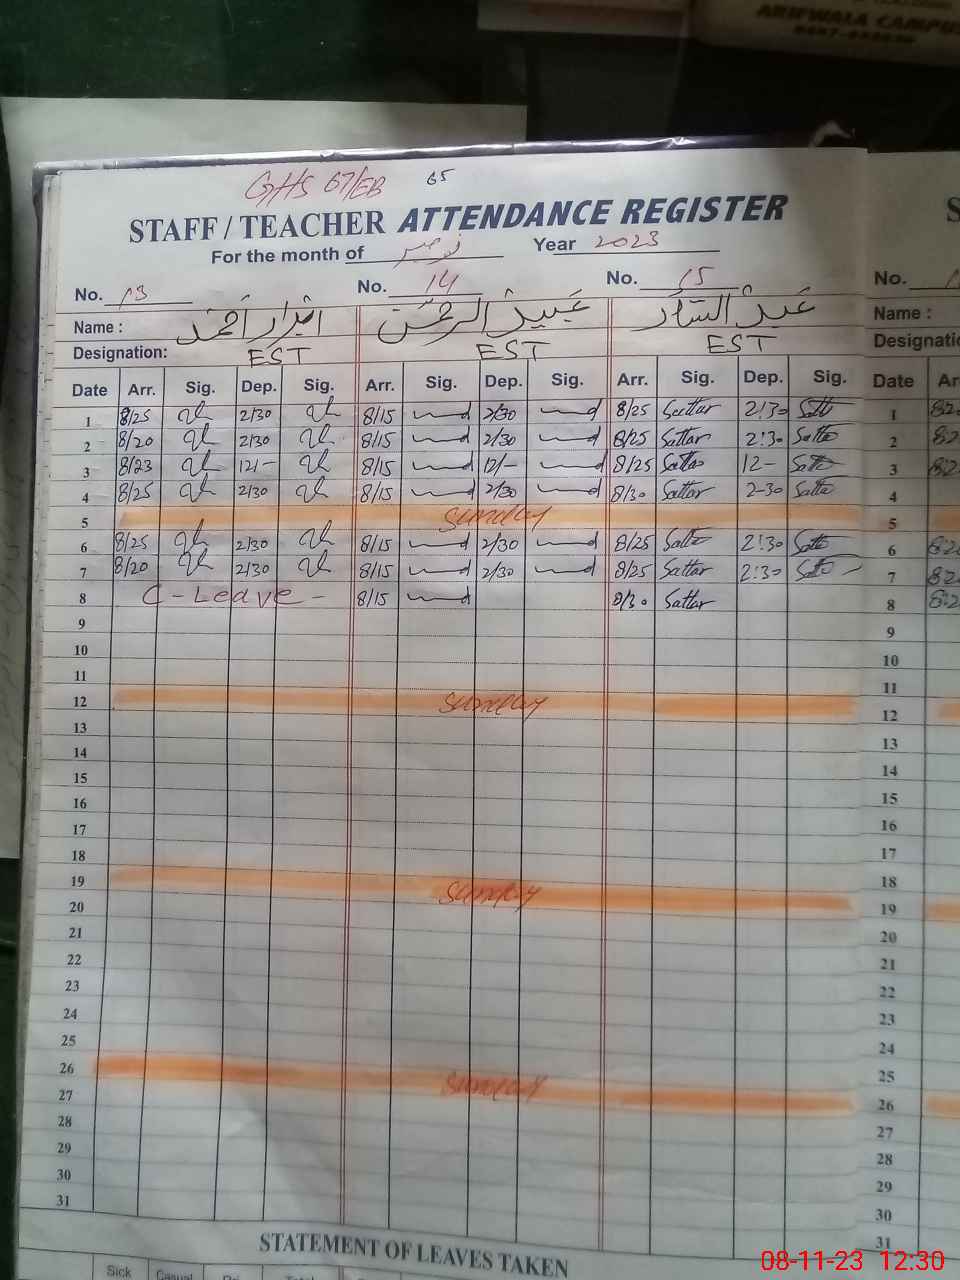 ARIFWALA CAMPUS
GHS 67/EB 65
STAFF / TEACHER ATTENDANCE REGISTER
For the month of نومبر Year 2023
No. 13 No. 14 No. 15
Name : احمد عبید الرحمٰن عبد الستار
Designation: EST EST EST
Date Arr. Sig. Dep. Sig. Arr. Sig. Dep. Sig. Arr. Sig. Dep. Sig.
1 8/25 2/30 8/15 2/30 8/25 Sattar 2:30 Satta
2 8/20 2/30 8/15 2/30 8/25 Sattar 2:30 Satta
3 8/23 12/- 8/15 12/- 8/25 Sattar 12- Satta
4 8/25 2/30 8/15 2/30 8/30 Sattar 2-30 Satta
5 Sunday
6 8/25 2/30 8/15 2/30 8/25 Satta 2:30 Satta
7 8/20 2/30 8/15 2/30 8/25 Sattar 2:30 Satta
8 C-Leave- 8/15 8/30 Sattar
9
10
11
12 Sunday
13
14
15
16
17
18
19 Sunday
20
21
22
23
24
25
26 Sunday
27
28
29
30
31
STATEMENT OF LEAVES TAKEN
Sick Casual Total
S
No.
Name :
Designati
Date Ar
1
2
3
4
5
6
7
8
9
10
11
12
13
14
15
16
17
18
19
20
21
22
23
24
25
26
27
28
29
30
31
08-11-23 12:30